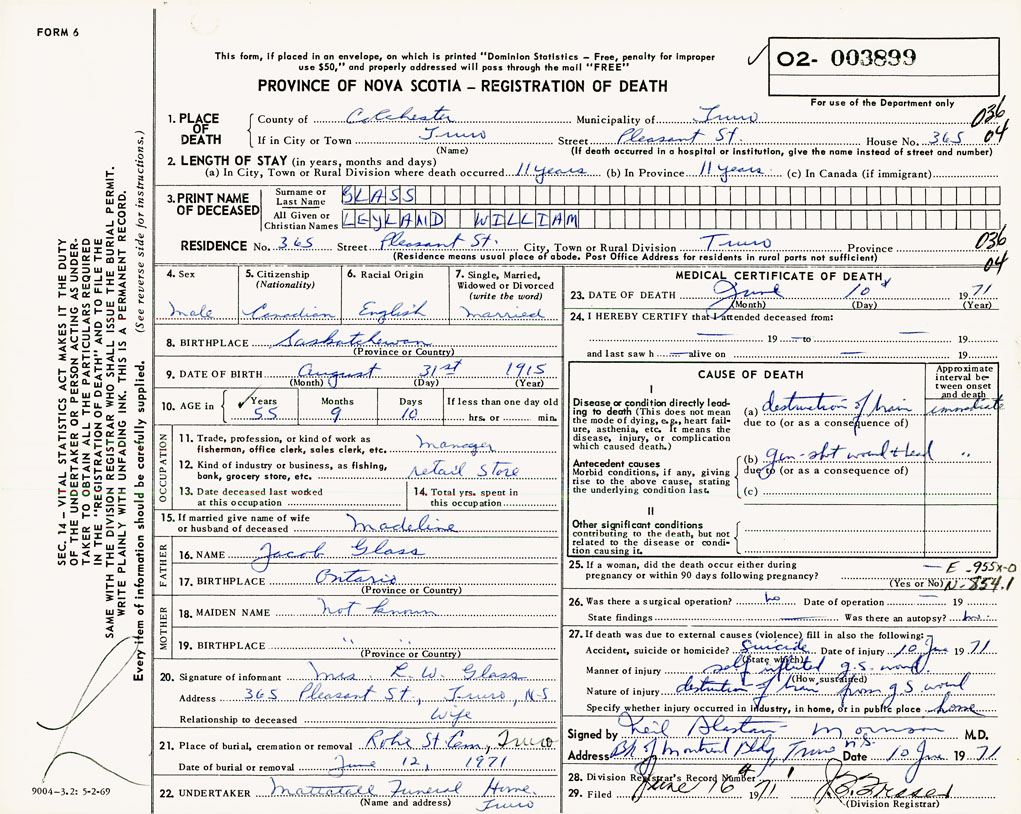 FORM 6
This form, if placed in an envelope, on which is printed "Dominion Statistics - Free, penalty for improper
use $50," and properly addressed will pass through the mail "FREE"
02- 003899
PROVINCE OF NOVA SCOTIA – REGISTRATION OF DEATH
For use of the Department only
1. PLACE OF DEATH
County of Colchester Municipality of Truro 036
If in City or Town Truro Street Pleasant St. House No. 365 04
(Name) (If death occurred in a hospital or institution, give the name instead of street and number)
2. LENGTH OF STAY (in years, months and days)
(a) In City, Town or Rural Division where death occurred 11 years (b) In Province 11 years (c) In Canada (if immigrant)
3. PRINT NAME OF DECEASED
Surname or Last Name GLASS
All Given or Christian Names LEYLAND WILLIAM
RESIDENCE No. 365 Street Pleasant St. City, Town or Rural Division Truro Province 036
(Residence means usual place of abode. Post Office Address for residents in rural parts not sufficient) 04
4. Sex
Male
5. Citizenship (Nationality)
Canadian
6. Racial Origin
English
7. Single, Married, Widowed or Divorced (write the word)
Married
8. BIRTHPLACE Saskatchewan
(Province or Country)
9. DATE OF BIRTH August 31st 1915
(Month) (Day) (Year)
10. AGE in Years Months Days If less than one day old
55 9 10 hrs. or min.
OCCUPATION
11. Trade, profession, or kind of work as fisherman, office clerk, sales clerk, etc. manager
12. Kind of industry or business, as fishing, bank, grocery store, etc. retail store
13. Date deceased last worked at this occupation
14. Total yrs. spent in this occupation
15. If married give name of wife or husband of deceased Madeline
FATHER
16. NAME Jacob Glass
17. BIRTHPLACE Ontario
(Province or Country)
MOTHER
18. MAIDEN NAME not known
19. BIRTHPLACE " "
(Province or Country)
20. Signature of informant Mrs. L. W. Glass
Address 365 Pleasant St., Truro, N.S
Relationship to deceased Wife
21. Place of burial, cremation or removal Robie St Cem., Truro
Date of burial or removal June 12, 1971
22. UNDERTAKER Mattatall Funeral Home.
(Name and address) Truro
MEDICAL CERTIFICATE OF DEATH
23. DATE OF DEATH June 10 1971
(Month) (Day) (Year)
24. I HEREBY CERTIFY that I attended deceased from:
19 to 19
and last saw h alive on 19
CAUSE OF DEATH
Approximate interval between onset and death
I
Disease or condition directly leading to death (This does not mean the mode of dying, e.g., heart failure, asthenia, etc. It means the disease, injury, or complication which caused death.)
(a) destruction of brain immediate
due to (or as a consequence of)
Antecedent causes
Morbid conditions, if any, giving rise to the above cause, stating the underlying condition last.
(b) gun-shot wound head "
due to (or as a consequence of)
(c)
II
Other significant conditions
contributing to the death, but not related to the disease or condition causing it.
25. If a woman, did the death occur either during pregnancy or within 90 days following pregnancy? E-955x-0
(Yes or No) N-854.1
26. Was there a surgical operation? no Date of operation 19
State findings Was there an autopsy? no
27. If death was due to external causes (violence) fill in also the following:
Accident, suicide or homicide? Suicide Date of injury 10 June 1971
(State which)
Manner of injury self inflicted g.s. wound
(How sustained)
Nature of injury destruction of brain from g.s wound
Specify whether injury occurred in Industry, in home, or in public place home
Signed by Neil Alastair M.D.
Address Bk of Montreal Bldg, Truro N.S. Date 10 June 1971
28. Division Registrar's Record Number
29. Filed June 16 1971
(Division Registrar)
SEC. 14 – VITAL STATISTICS ACT MAKES IT THE DUTY
OF THE UNDERTAKER OR PERSON ACTING AS UNDER-
TAKER TO OBTAIN ALL THE PARTICULARS REQUIRED
IN THE "REGISTRATION OF DEATH" AND TO FILE THE
SAME WITH THE DIVISION REGISTRAR WHO SHALL ISSUE THE BURIAL PERMIT.
WRITE PLAINLY WITH UNFADING INK. THIS IS A PERMANENT RECORD.
Every item of information should be carefully supplied. (See reverse side for instructions.)
9004-3.2: 5-2-69